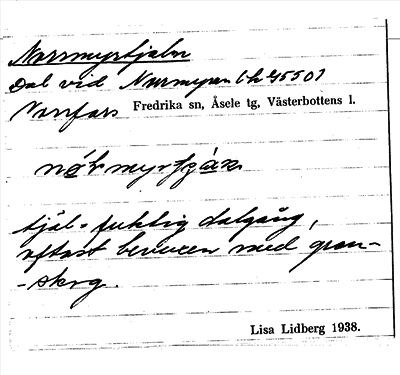 Norrmyrtjäln
Dal vid Norrmyran (h 45501
Norrfors Fredrika sn, Åsele tg, Västerbottens l.
tjäl = fuktig dalgång,
oftast bevuxen med gran-
-skog.
Lisa Lidberg 1938.